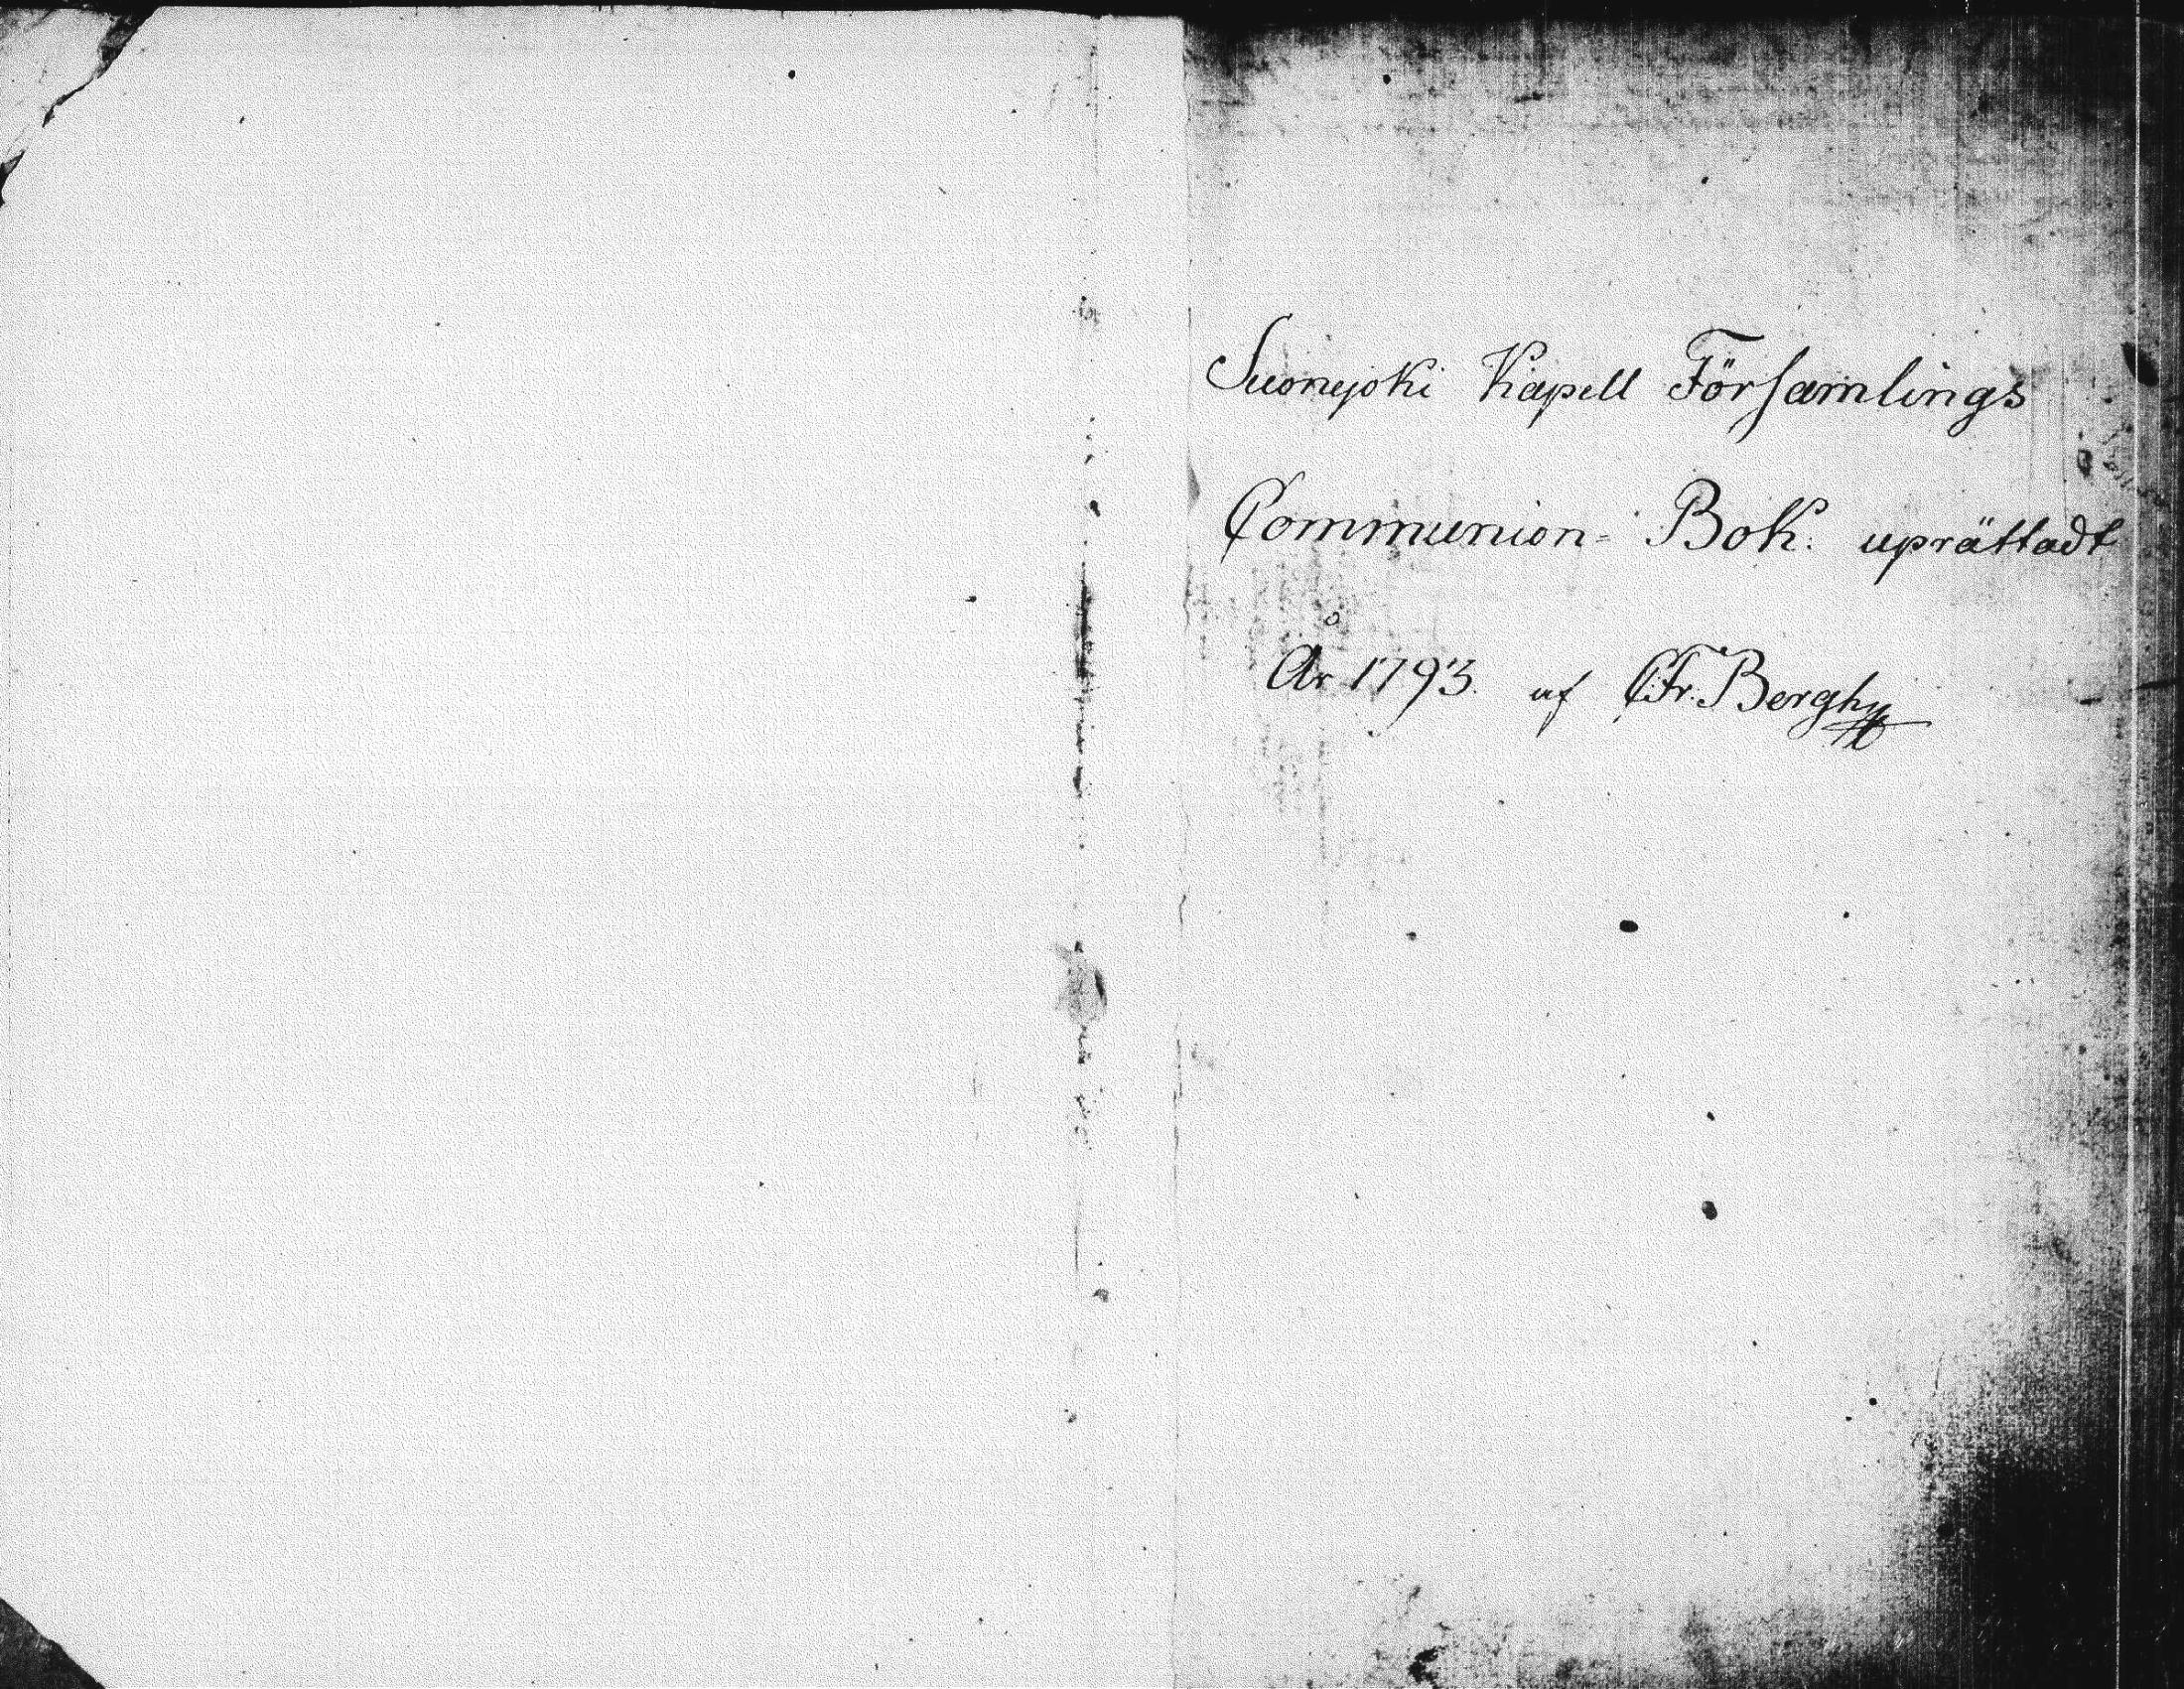 Suonejoki Kapell Församlings
Communion= Bok. uprättadt
År 1793. af C.Fr. Bergh